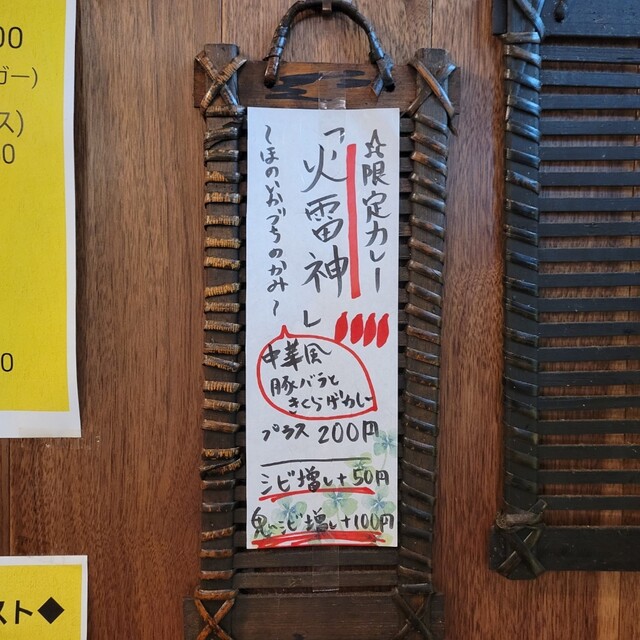 ☆限定カレー
「火雷神」
～ほのいかづちのかみ～
中華風
豚バラと
きくらげカレー
プラス 200円
シビ増し+50円
鬼シビ増し+100円
00
ガー)
ス)
0
0
スト◆